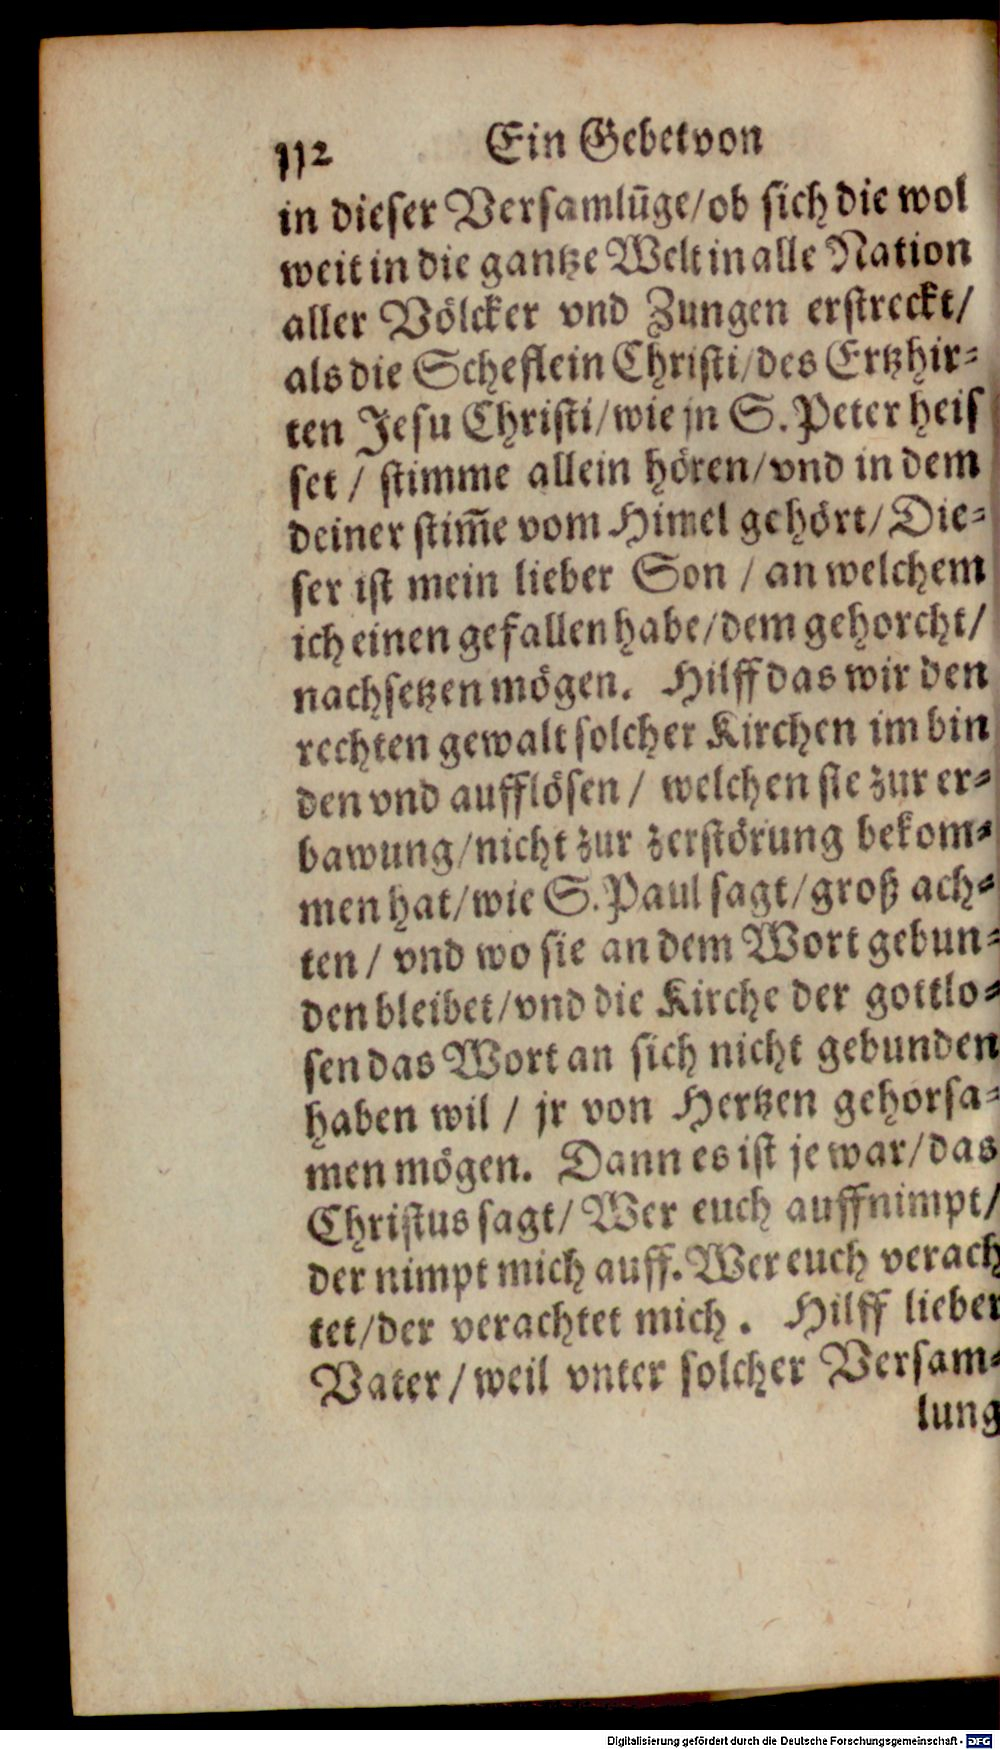 112 Ein Gebet von
in dieser Versamlūge/ob sich die wol
weit in die gantze Welt in alle Nation
aller Völcker vnd Zungen erstreckt/
als die Scheflein Christi/des Ertzhir-
ten Jesu Christi/wie jn S. Peter heis
set / stimme allein hören/vnd in dem
deiner stim̄e vom Himel gehört/Die-
ser ist mein lieber Son / an welchem
ich einen gefallen habe/dem gehorcht/
nachsetzen mögen. Hilff das wir den
rechten gewalt solcher Kirchen im bin
den vnd aufflösen / welchen sie zur er-
bawung/nicht zur zerstörung bekom-
men hat/wie S. Paul sagt/groß ach-
ten / vnd wo sie an dem Wort gebun-
den bleibet/vnd die Kirche der gottlo-
sen das Wort an sich nicht gebunden
haben wil / jr von Hertzen gehorsa-
men mögen. Dann es ist je war/das
Christus sagt/ Wer euch auffnimpt/
der nimpt mich auff. Wer euch verach
tet/der verachtet mich. Hilff lieber
Vater / weil vnter solcher Versam-
lung
Digitalisierung gefördert durch die Deutsche Forschungsgemeinschaft - DFG